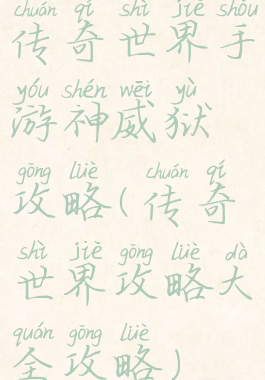 chuán qí shì jiē shǒu
传奇世界手
yóu shén wēi yù
游神威狱
gōng lüè chuán qí
攻略(传奇
shì jiē gōng lüè dà
世界攻略大
quán gōng lüè
全攻略)